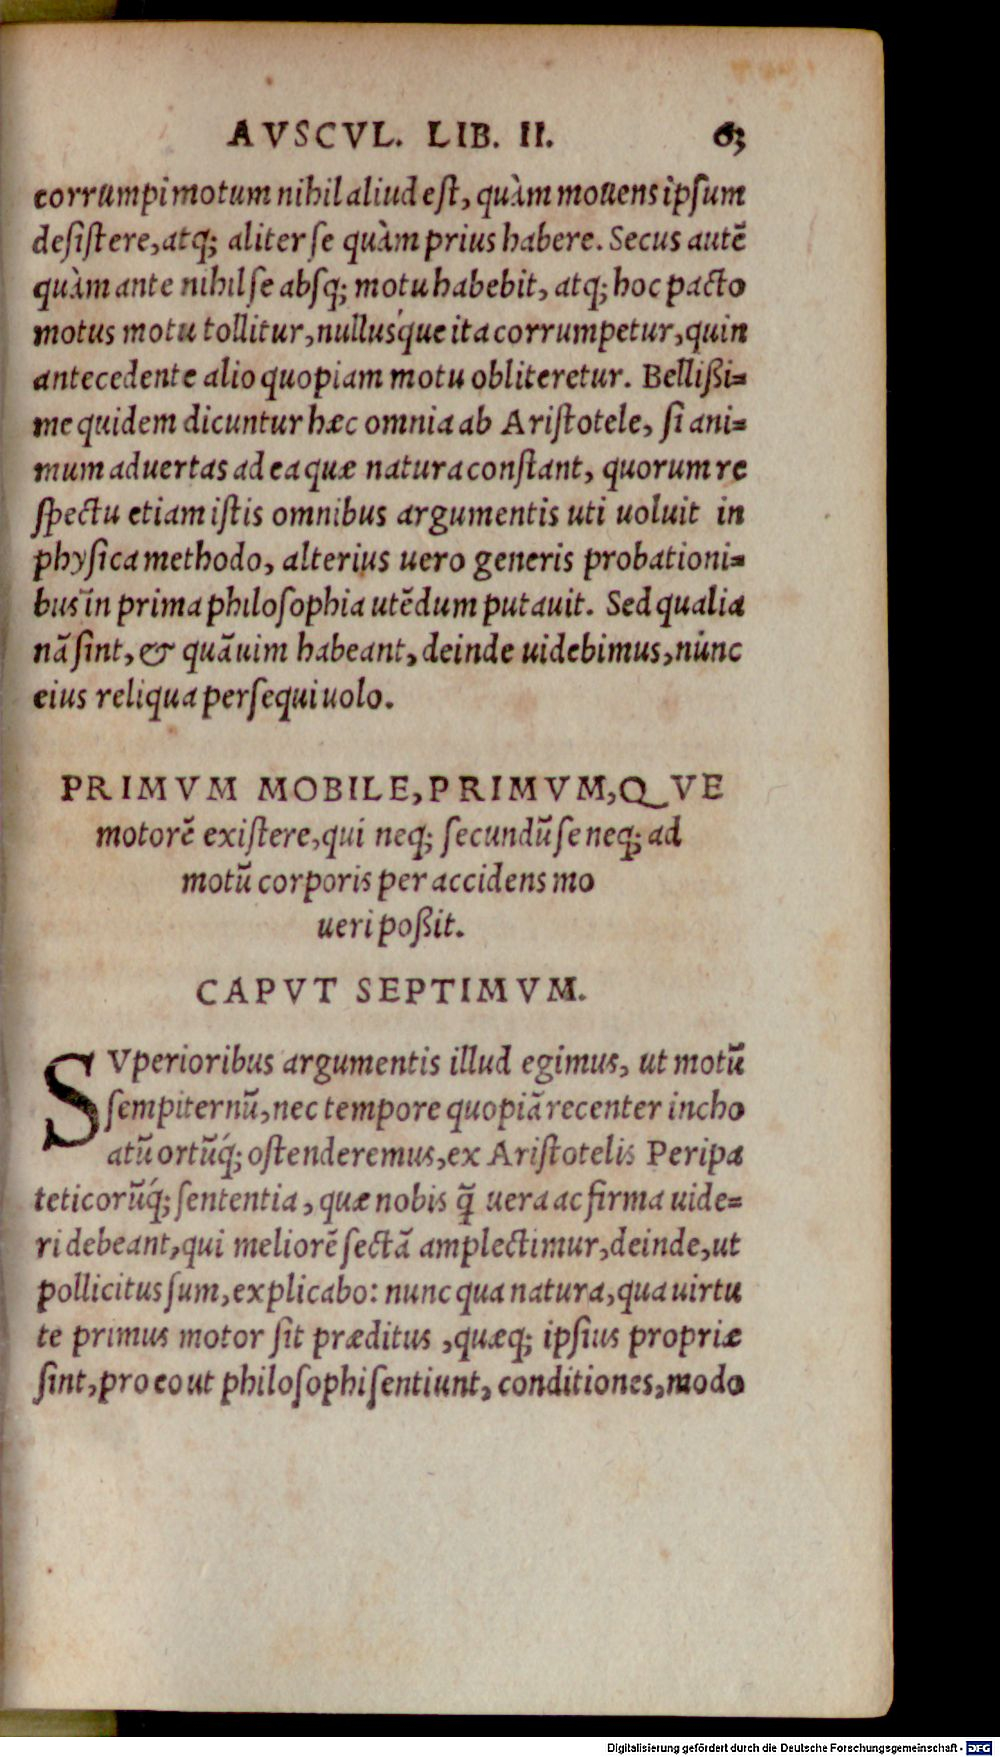 AVSCVL. LIB. II. 63
corrumpi motum nihil aliud est, quàm mouens ipsum
desistere, atq; aliter se quàm prius habere. Secus autẽ
quàm ante nihil se absq; motu habebit, atq; hoc pacto
motus motu tollitur, nullusq́ue ita corrumpetur, quin
antecedente alio quopiam motu obliteretur. Bellißi=
me quidem dicuntur hæc omnia ab Aristotele, si ani=
mum aduertas ad ea quæ natura constant, quorum re
spectu etiam istis omnibus argumentis uti uoluit in
physica methodo, alterius uero generis probationi=
bus in prima philosophia utẽdum putauit. Sed qualia
nã sint, & quã uim habeant, deinde uidebimus, nunc
eius reliqua persequi uolo.
PRIMVM MOBILE, PRIMVM, QVE
motorẽ existere, qui neq; secundũ se neq; ad
motũ corporis per accidens mo
ueri poßit.
CAPVT SEPTIMVM.
SVperioribus argumentis illud egimus, ut motũ
sempiternũ, nec tempore quopiã recenter incho
atũ ortũq́; ostenderemus, ex Aristotelis Peripa
teticorũq́; sententia, quæ nobis q̃ uera ac firma uide=
ri debeant, qui meliorẽ sectã amplectimur, deinde, ut
pollicitus sum, explicabo: nunc qua natura, qua uirtu
te primus motor sit præditus, quæq; ipsius propriæ
sint, pro eo ut philosophi sentiunt, conditiones, modo
Digitalisierung gefördert durch die Deutsche Forschungsgemeinschaft - DFG